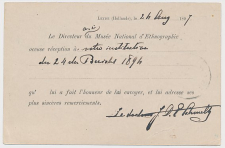 Leyde (Hollande), le 24 Aug 1897
Le Directeur du Musée National d'Ethnographie
accuse réception de votre
du 24 de 1894
qu' lui a fait l'honneur de lui envoyer, et lui adresse ses
plus sincères remercîments,